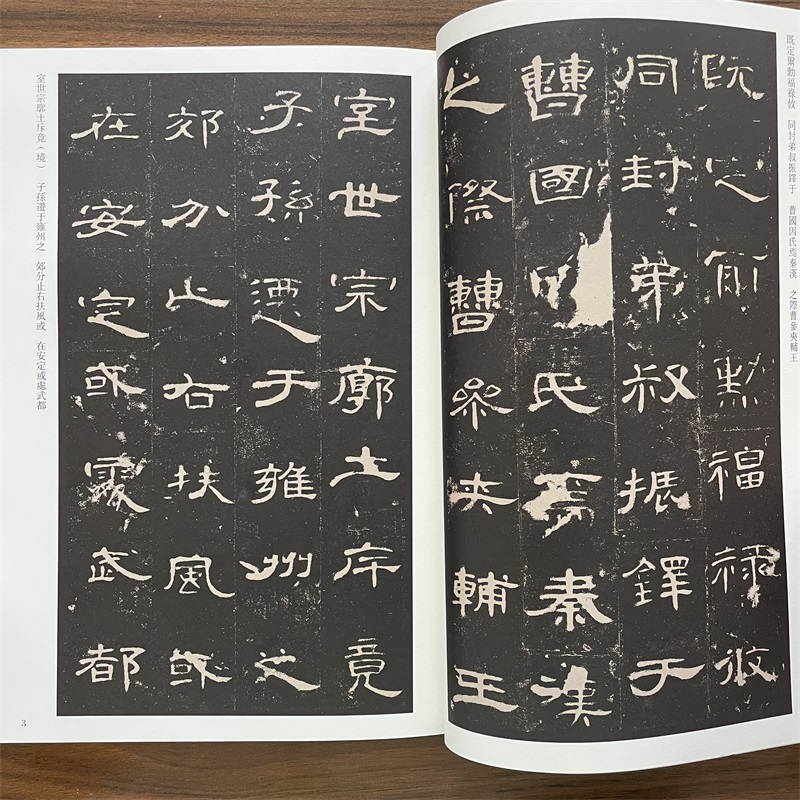 既定爾勳福祿攸　同封弟叔振鐸于　曹國因氏焉秦漢　之際曹參夾輔王
既定爾勳福祿攸
同封弟叔振鐸于
曹國因氏焉秦漢
之際曹參夾輔王
室世宗廓土斥竟
子孫遷于雍州之
郊分止右扶風或
在安定或處武都
室世宗廓土斥竟（境）　子孫遷于雍州之　郊分止右扶風或　在安定或處武都
3